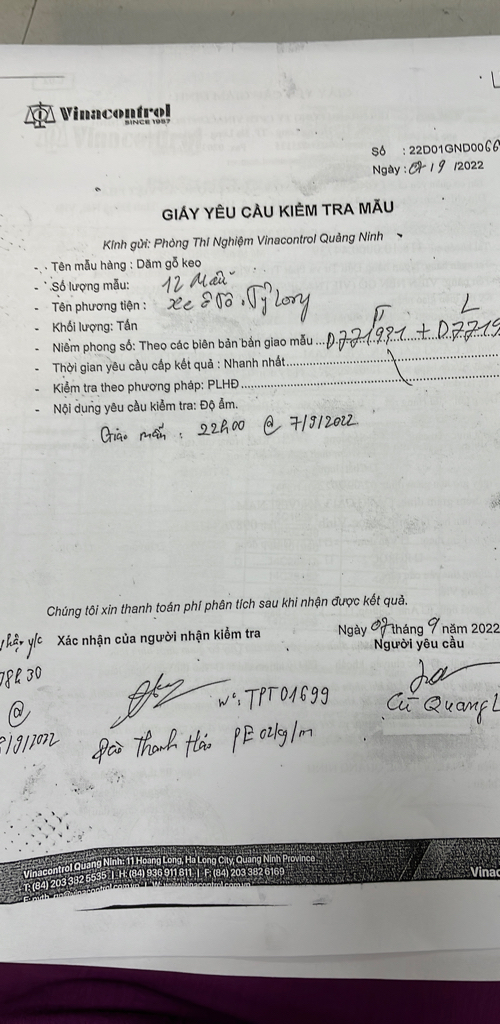 Vinacontrol
SINCE 1957
Số : 22D01GND0066
Ngày : 07/9 /2022
GIẤY YÊU CẦU KIỂM TRA MẪU
Kính gửi: Phòng Thí Nghiệm Vinacontrol Quảng Ninh
- Tên mẫu hàng : Dăm gỗ keo
- Số lượng mẫu: 12 Mẫu
- Tên phương tiện : Xe ô tô
- Khối lượng: Tấn
- Niêm phong số: Theo các biên bản bàn giao mẫu ... D771931 + D7719
- Thời gian yêu cầu cấp kết quả : Nhanh nhất
- Kiểm tra theo phương pháp: PLHĐ
- Nội dung yêu cầu kiểm tra: Độ ẩm.
Giao mẫu : 22h00 @ 7/9/2022
Chúng tôi xin thanh toán phí phân tích sau khi nhận được kết quả.
Ngày 07 tháng 9 năm 2022
y/c Xác nhận của người nhận kiểm tra
Người yêu cầu
08h30
@
/9/2022
TPT01699
Cù Quang L
Đào Thanh Hảo PE 02kg/m
Vinacontrol Quang Ninh: 11 Hoang Long, Ha Long City, Quang Ninh Province
T: (84) 203 382 5535 | H: (84) 936 911 811 | F: (84) 203 382 6169
Vinac